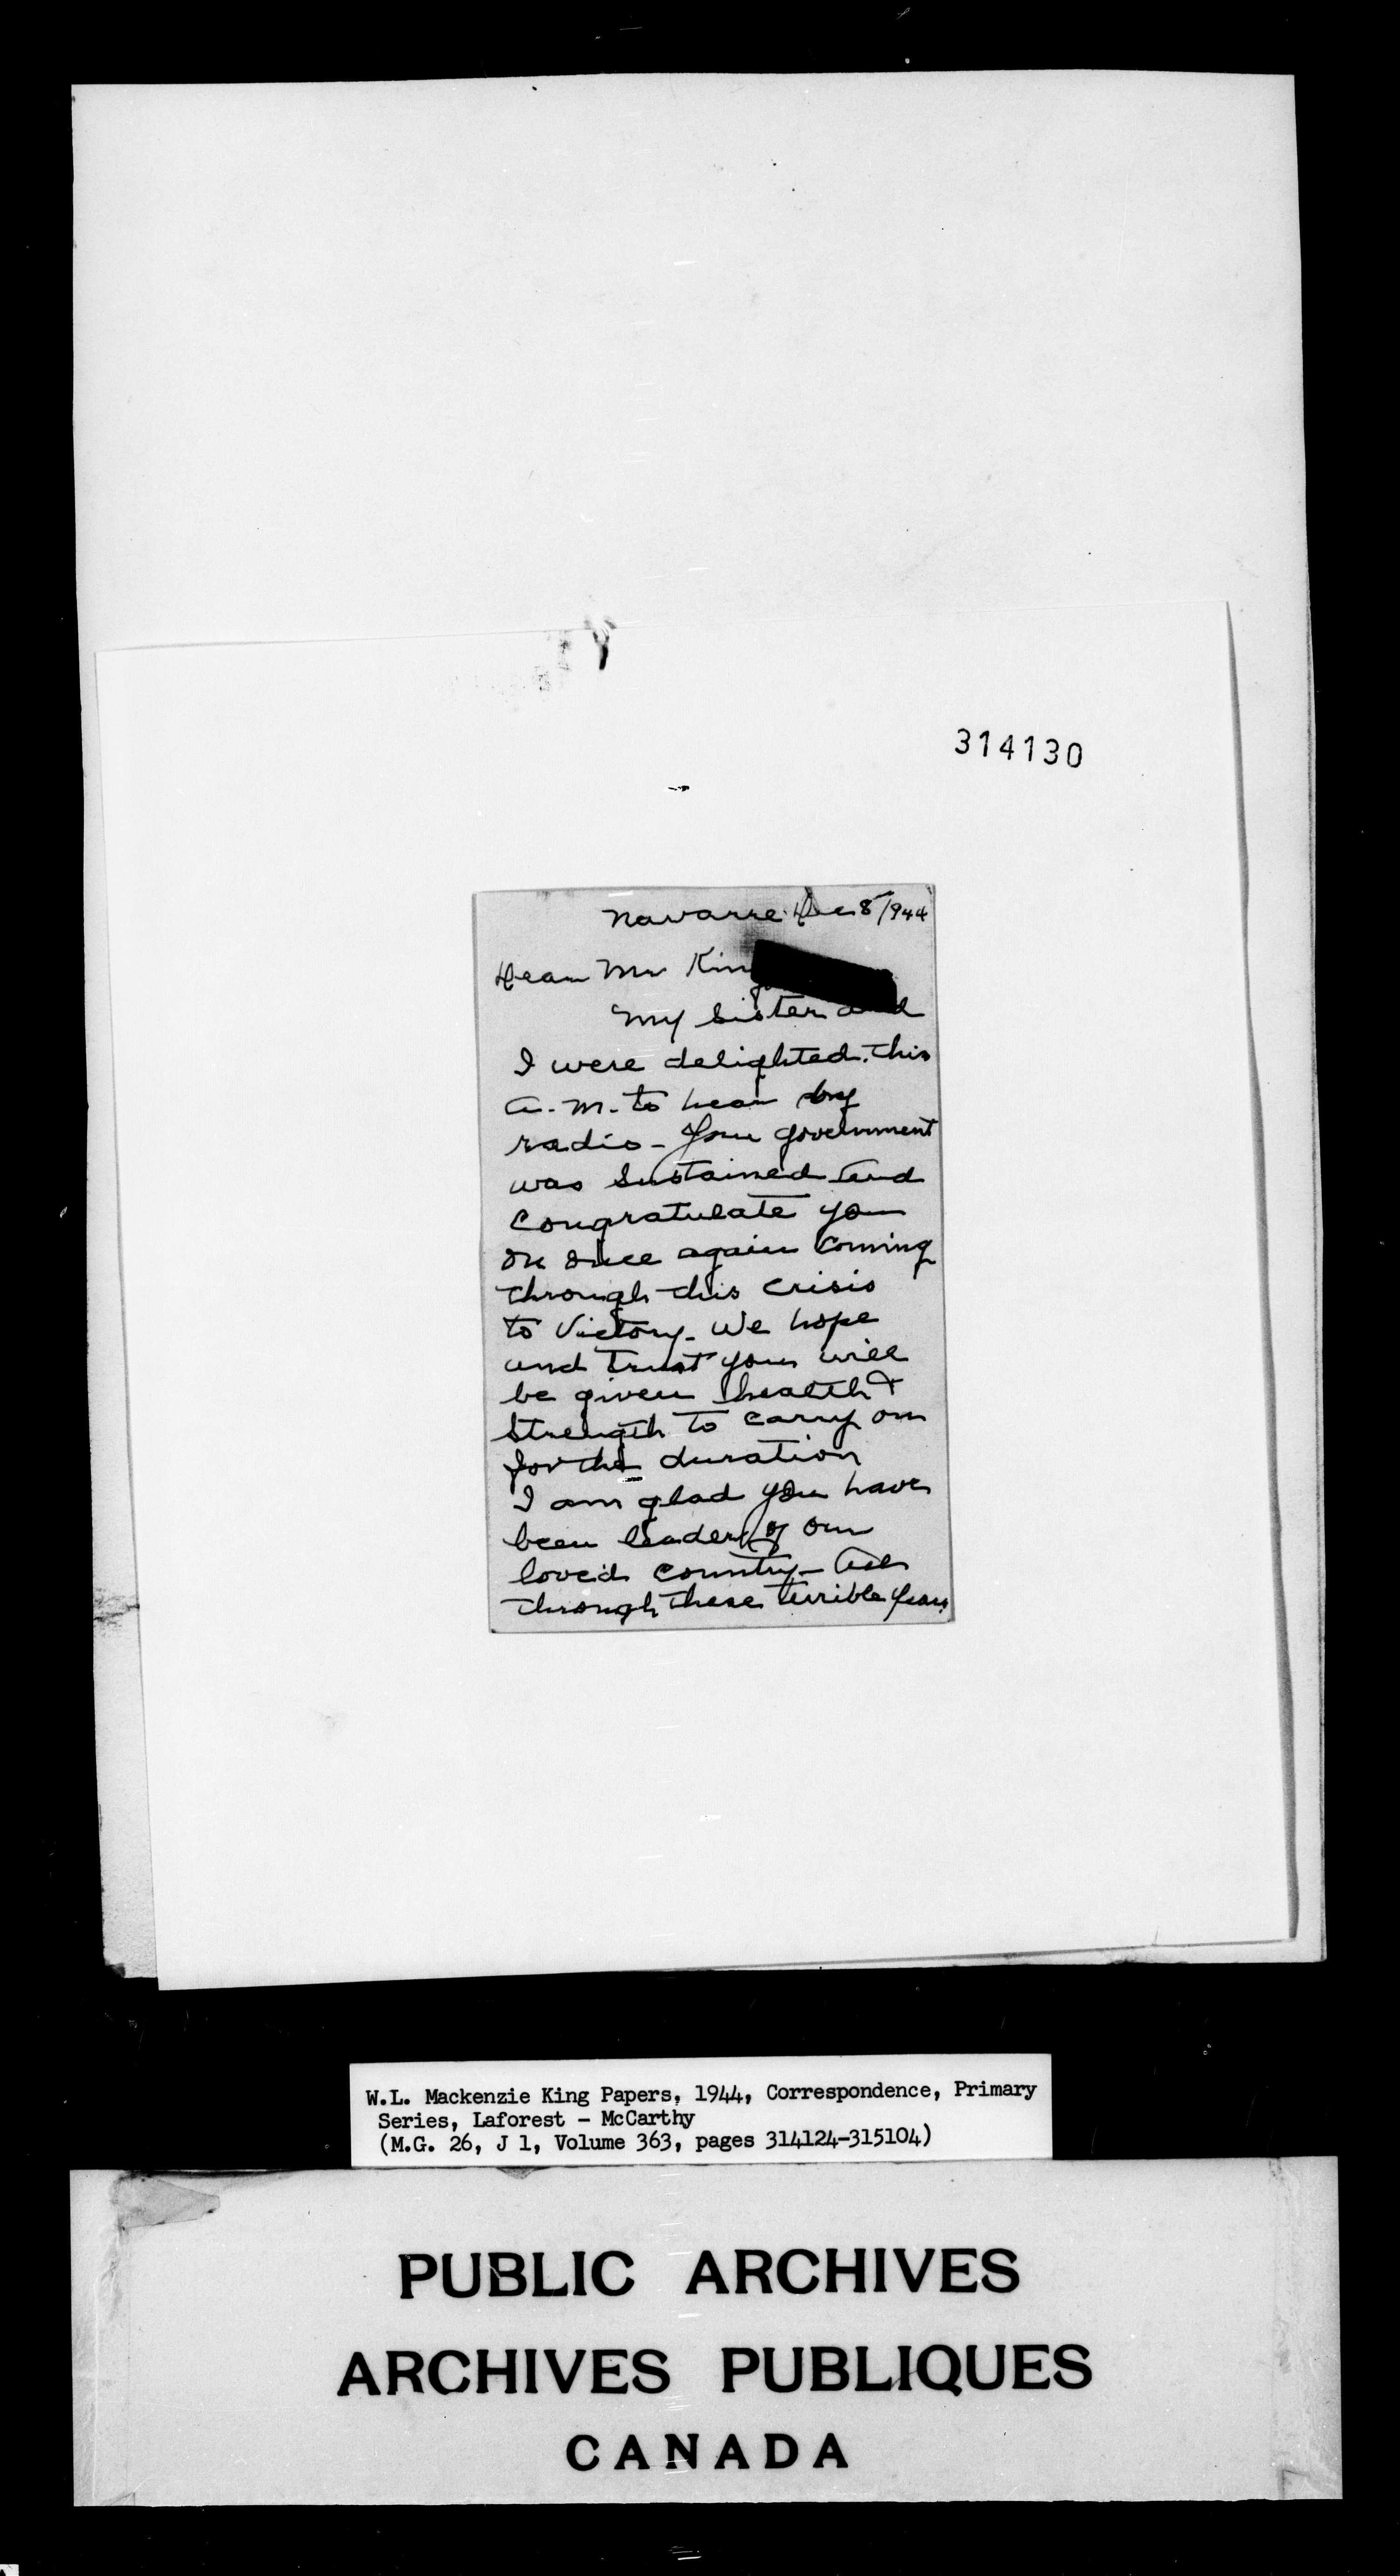 314130
Navarre Dec 8/944
Dear Mr King
My sister and
I were delighted this
a.m. to hear by
radio - your government
was sustained and
congratulate you
on once again coming
through this crisis
to Victory - We hope
and trust you will
be given health &
strength to carry on
for the duration
I am glad you have
been leader of our
loved country - all
through these terrible years
W.L. Mackenzie King Papers, 1944, Correspondence, Primary
Series, Laforest - McCarthy
(M.G. 26, J 1, Volume 363, pages 314124-315104)
PUBLIC ARCHIVES
ARCHIVES PUBLIQUES
CANADA